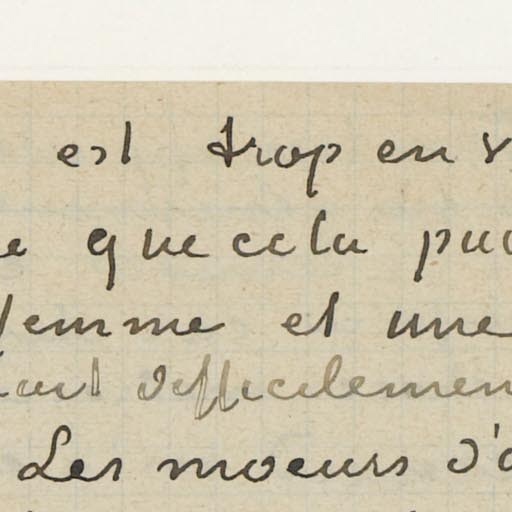 est trop en
que cela
femme et une
difficilement
Les moeurs d'